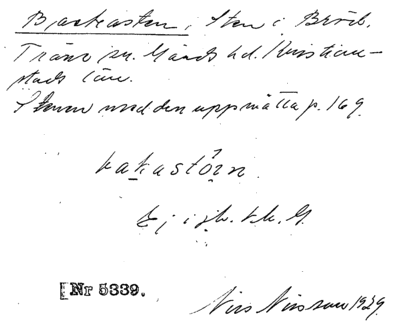 Backasten, Sten i Bröd.
Tranö sn. Gärds hd. Kristian-
stads län.
Stenen med den uppmätta p. 169.
bakastö́in
Ej i jb. l.k. G.
[Nr 5339.
Nils Nilsson 1929.